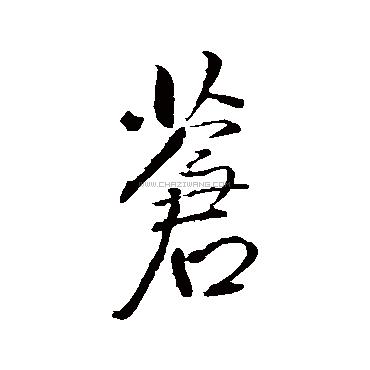 蒼
WWW.CHAZIWANG.COM